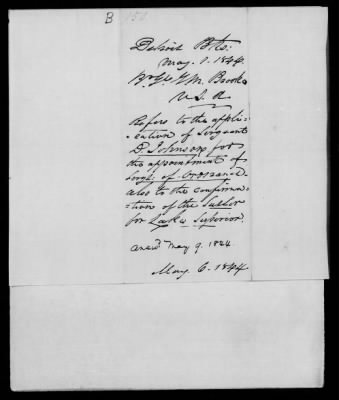 B 150
Detroit Bks:
May. 1. 1844
Br Gl. G. M. Brooke
U. S. A
Refers to the appli-
-cation of Sergeant
D. Johnson for
the appointment of
Sergt. of Ordnance
also to the confirma-
-tion of the Sutler
for Lake Superior.
answd May 9. 1844
May 6. 1844